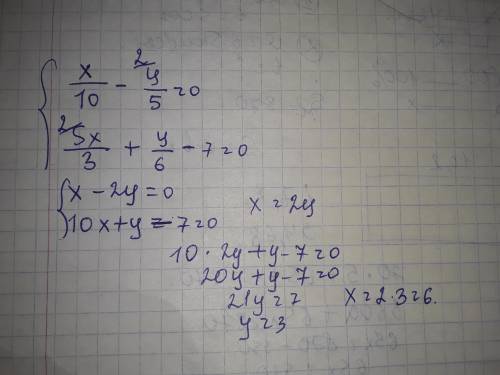 x/10 - ²y/5 = 0
²5x/3 + y/6 - 7 = 0
x - 2y = 0
10x + y - 7 = 0
x = 2y
10 · 2y + y - 7 = 0
20y + y - 7 = 0
21y = 7
x = 2 · 3 = 6.
y = 3